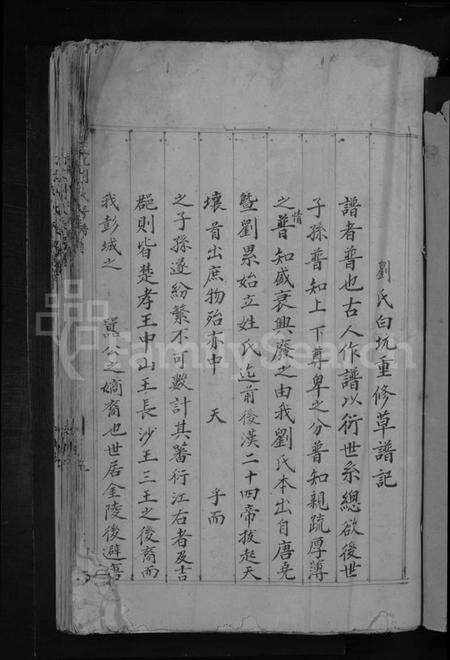 劉氏白坑重修草譜記
譜者普也古人作譜以衍世系總欲後世
子孫普知上下尊卑之分普知親疏厚薄
之情普知盛衰興廢之由我劉氏本出自唐堯
暨劉累始立姓氏迄前後漢二十四帝拔起天
壤首出庶物殆亦中 天 乎而
之子孫遂紛繁不可數計其蕃衍江右者及吉
郡則皆楚孝王中山王長沙王三王之後裔而
我彭城之 公之嫡裔也世居金陵後避
FamilySearch